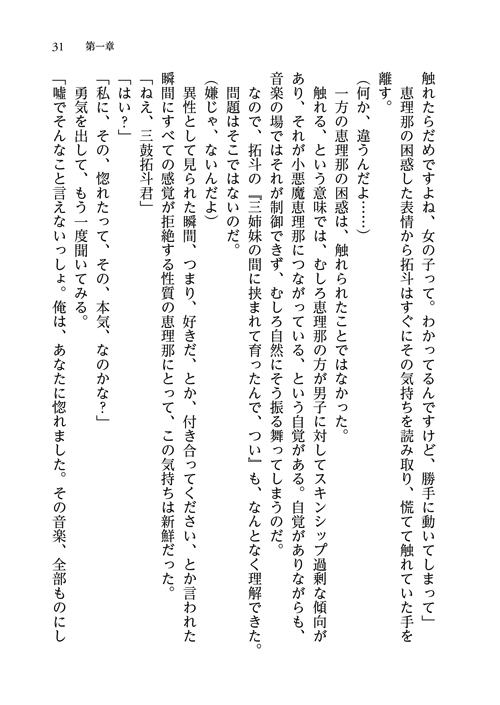 31　第一章
触れたらだめですよね、女の子って。わかってるんですけど、勝手に動いてしまって」
　恵理那の困惑した表情から拓斗はすぐにその気持ちを読み取り、慌てて触れていた手を
離す。
（何か、違うんだよ……）
　一方の恵理那の困惑は、触れられたことではなかった。
　触れる、という意味では、むしろ恵理那の方が男子に対してスキンシップ過剰な傾向が
あり、それが小悪魔恵理那につながっている、という自覚がある。自覚がありながらも、
音楽の場ではそれが制御できず、むしろ自然にそう振る舞ってしまうのだ。
　なので、拓斗の『三姉妹の間に挟まれて育ったんで、つい』も、なんとなく理解できた。
　問題はそこではないのだ。
（嫌じゃ、ないんだよ）
　異性として見られた瞬間、つまり、好きだ、とか、付き合ってください、とか言われた
瞬間にすべての感覚が拒絶する性質の恵理那にとって、この気持ちは新鮮だった。
「ねえ、三鼓拓斗君」
「はい？」
「私に、その、惚れたって、その、本気、なのかな？」
　勇気を出して、もう一度聞いてみる。
「嘘でそんなこと言えないっしょ。俺は、あなたに惚れました。その音楽、全部ものにし